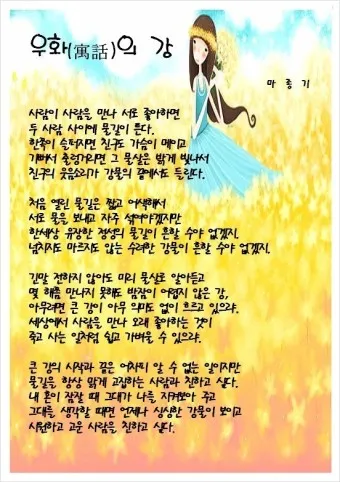 우화(寓話)의 강
마 종 기
사람이 사람을 만나 서로 좋아하면
두 사람 사이에 물길이 튼다.
한쪽이 슬퍼지면 친구도 가슴이 메이고
기뻐서 출렁거리면 그 물살은 밝게 빛나서
친구의 웃음소리가 강물의 끝에서도 들린다.
처음 열린 물길은 짧고 어색해서
서로 물을 보내고 자주 섞여야겠지만
한세상 유장한 정성의 물길이 흔할 수야 없겠지.
넘치지도 마르지도 않는 수려한 강물이 흔할 수야 없겠지.
긴말 전하지 않아도 미리 물살로 알아듣고
몇 해쯤 만나지 못해도 밤잠이 어렵지 않은 강,
아무려면 큰 강이 아무 의미도 없이 흐르고 있으랴.
세상에서 사람을 만나 오래 좋아하는 것이
죽고 사는 일처럼 쉽고 가벼울 수 있으랴.
큰 강의 시작과 끝은 어차피 알 수 없는 일이지만
물길을 항상 맑게 고집하는 사람과 친하고 싶다.
내 혼이 잠잘 때 그대가 나를 지켜보아 주고
그대를 생각할 때면 언제나 싱싱한 강물이 보이고
시원하고 고운 사람을 친하고 싶다.